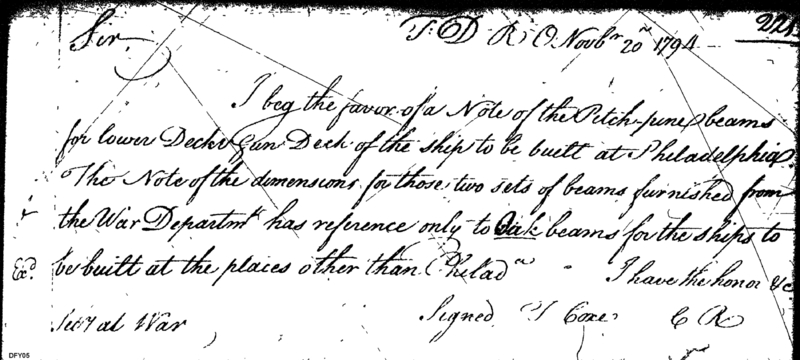 T. D R. O. Novbr 20th 1794
221
Sir.
I beg the favor of a Note of the Pitch-pine beams
for lower Deck & Gun Deck of the ship to be built at Philadelphia.
The Note of the dimensions for those two sets of beams furnished from
the War Departmt. has reference only to Oak beams for the ships to
be built at the places other than Philada. I have the honor &c.
Exd.
Signed T Coxe C R
Secy at War
DFY05